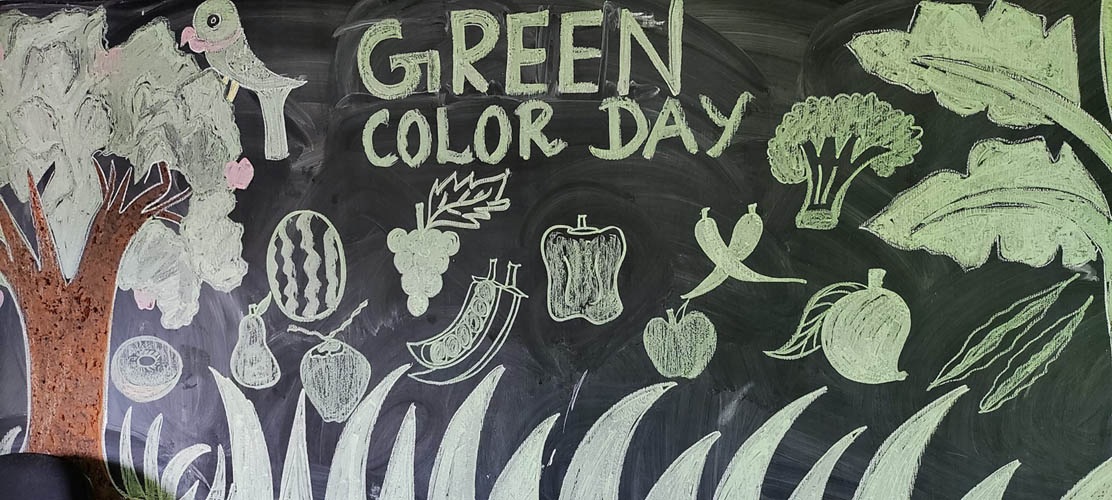 GREEN
COLOR DAY